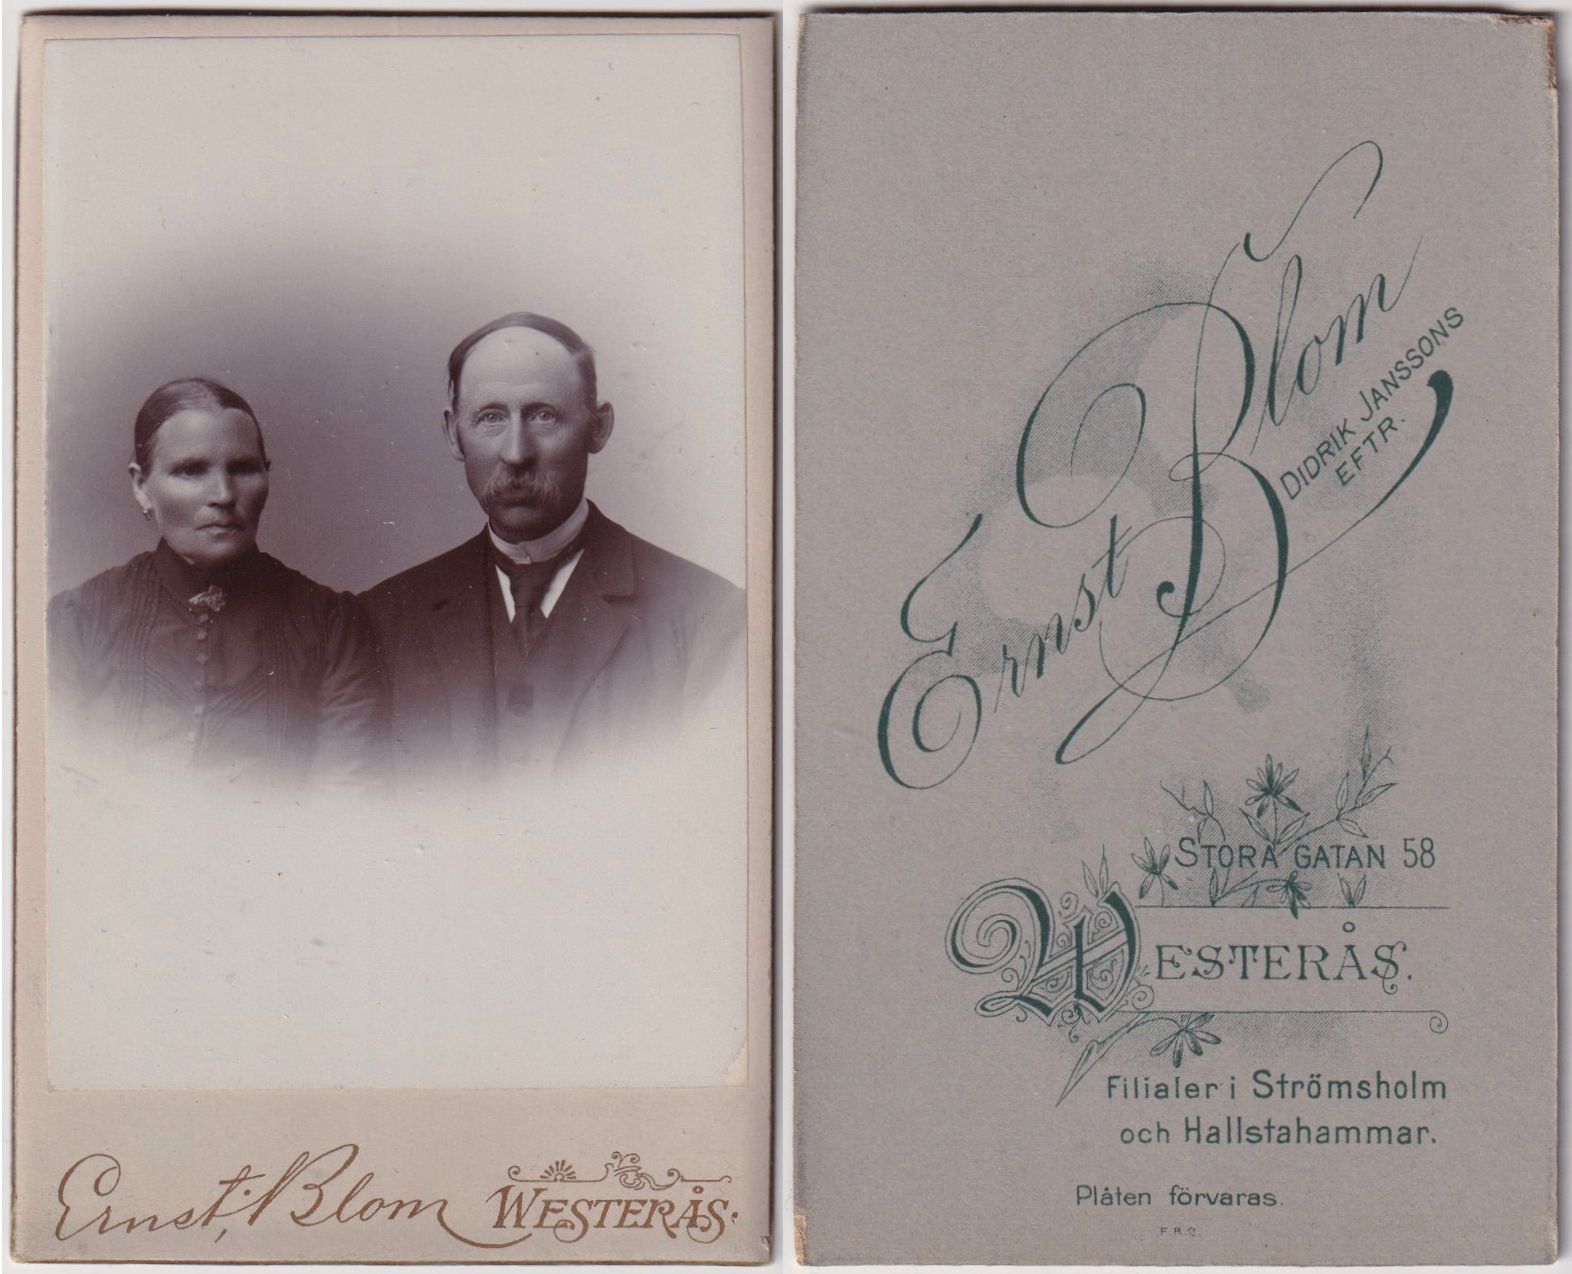 Ernst Blom WESTERÅS.
Ernst Blom
DIDRIK JANSSONS
EFTR.
STORA GATAN 58
WESTERÅS.
Filialer i Strömsholm
och Hallstahammar.
Plåten förvaras.